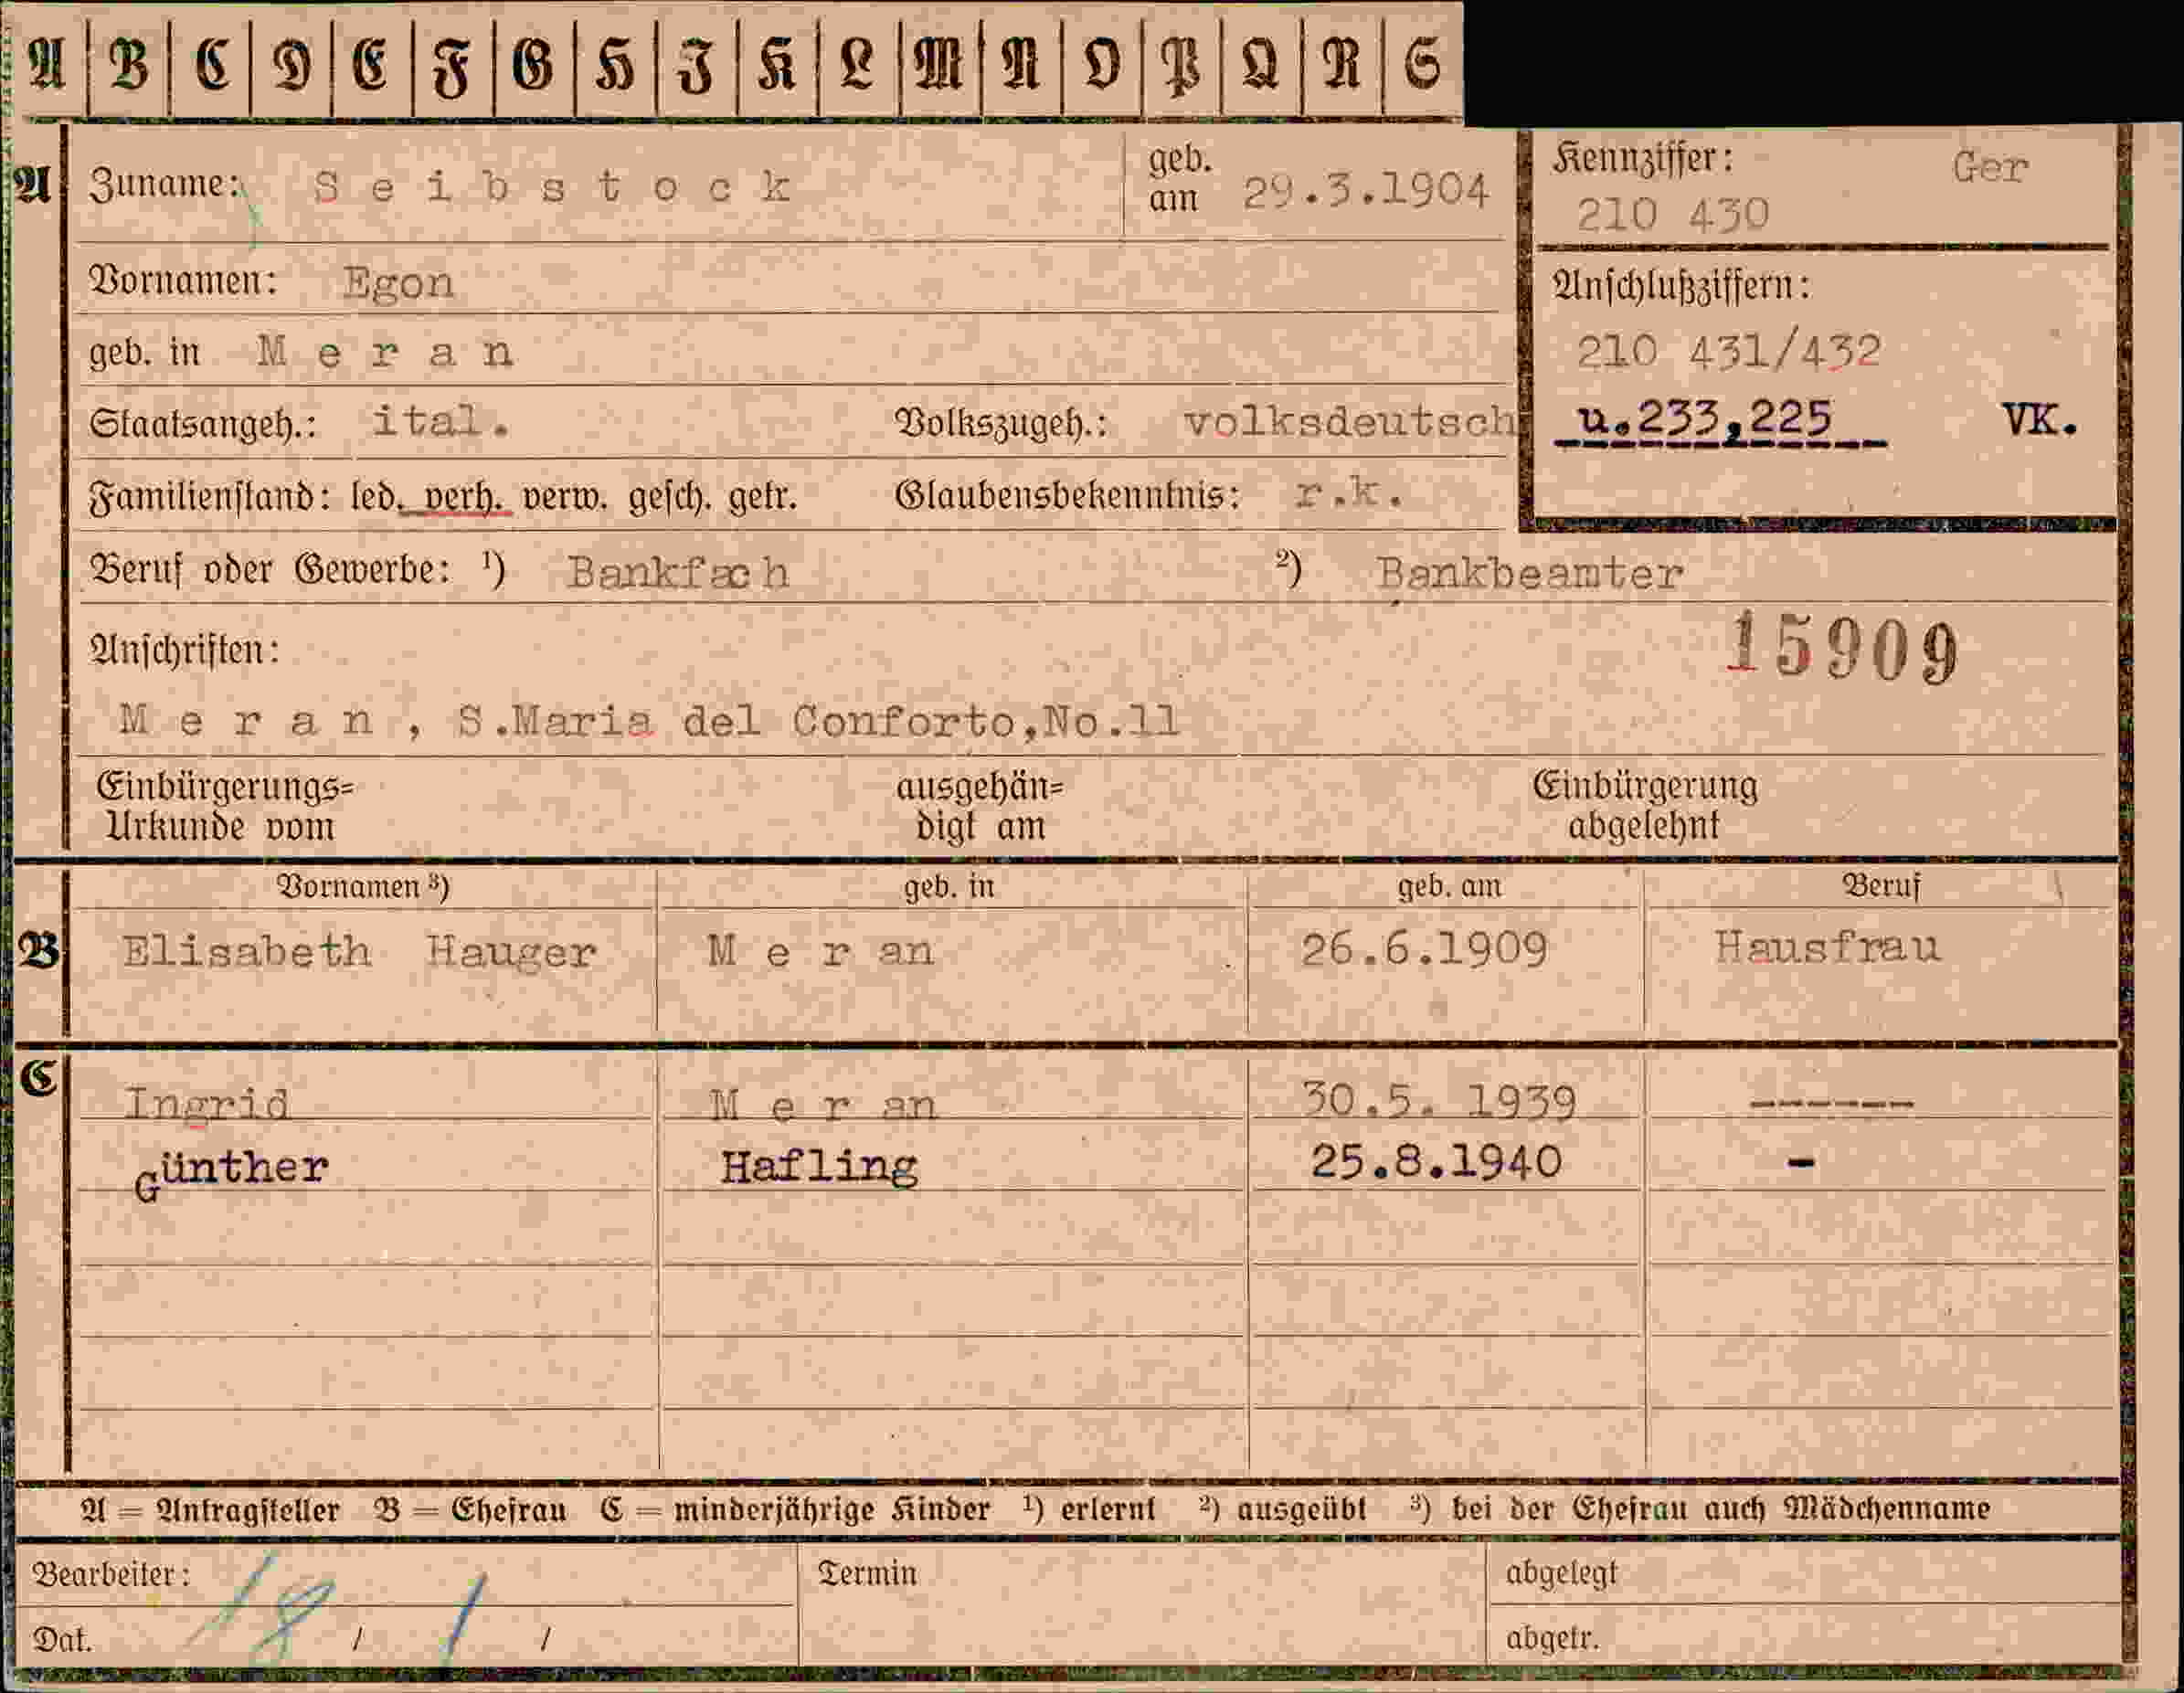 A B C D E F G H I K L M N O P Q R S
A Zuname: Seibstock geb. am 29.3.1904
Kennziffer: Ger
210 430
Vornamen: Egon
Anschlußziffern:
geb. in Meran
210 431/432
Staatsangeh.: ital. Volkszugeh.: volksdeutsch
u.233,225 VK.
Familienstand: led. verh. verw. gesch. getr. Glaubensbekenntnis: r.k.
Beruf oder Gewerbe: ¹) Bankfach ²) Bankbeamter
Anschriften: 15909
Meran, S.Maria del Conforto,No.11
Einbürgerungs= ausgehän= Einbürgerung
Urkunde vom digt am abgelehnt
Vornamen ³) geb. in geb. am Beruf
B Elisabeth Hauger Meran 26.6.1909 Hausfrau
C Ingrid Meran 30.5. 1939 ------
Günther Hafling 25.8.1940 -
A = Antragsteller B = Ehefrau C = minderjährige Kinder ¹) erlernt ²) ausgeübt ³) bei der Ehefrau auch Mädchenname
Bearbeiter: Termin abgelegt
Dat. 18 / 1 / abgetr.